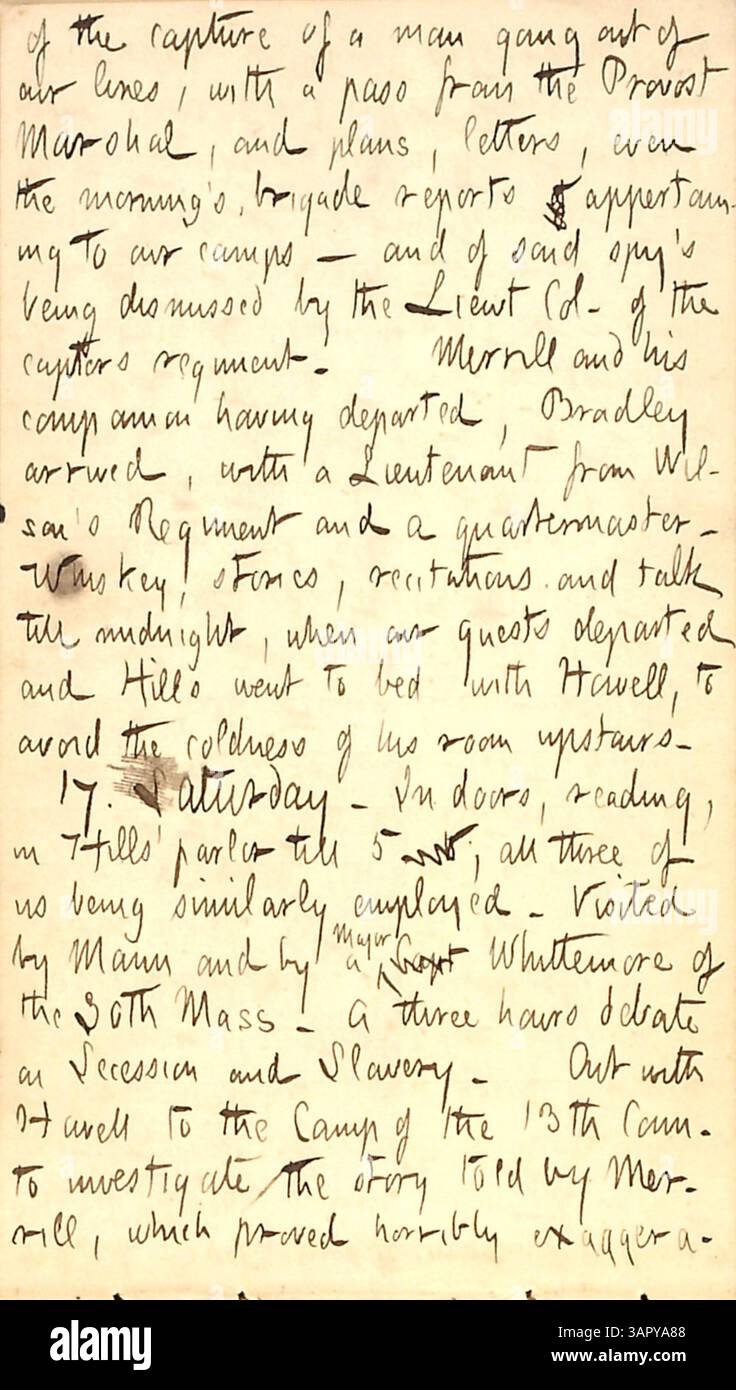 of the capture of a man going out of
our lines, with a pass from the Provost
Marshal, and plans, letters, even
the morning's, brigade reports appertain-
ing to our camps — and of said spy's
being dismissed by the Lieut Col- of the
captors regiment. Merrill and his
companion having departed, Bradley
arrived, with a Lieutenant from Wil-
son's Regiment and a quartermaster -
Whiskey, stories, recitations and talk
till midnight, when our guests departed
and Hills went to bed with Howell, to
avoid the coldness of his room upstairs -
17. Saturday - In doors, reading,
in Hills' parlor till 5, all three of
us being similarly employed - Visited
by Mann and by a Major Capt Whittemore of
the 30th Mass - A three hours debate
on Secession and Slavery - Out with
Howell to the Camp of the 13th Conn.
to investigate the story told by Mer-
rill, which proved horribly exaggera-
alamy
Image ID: 3APYA88
www.alamy.com